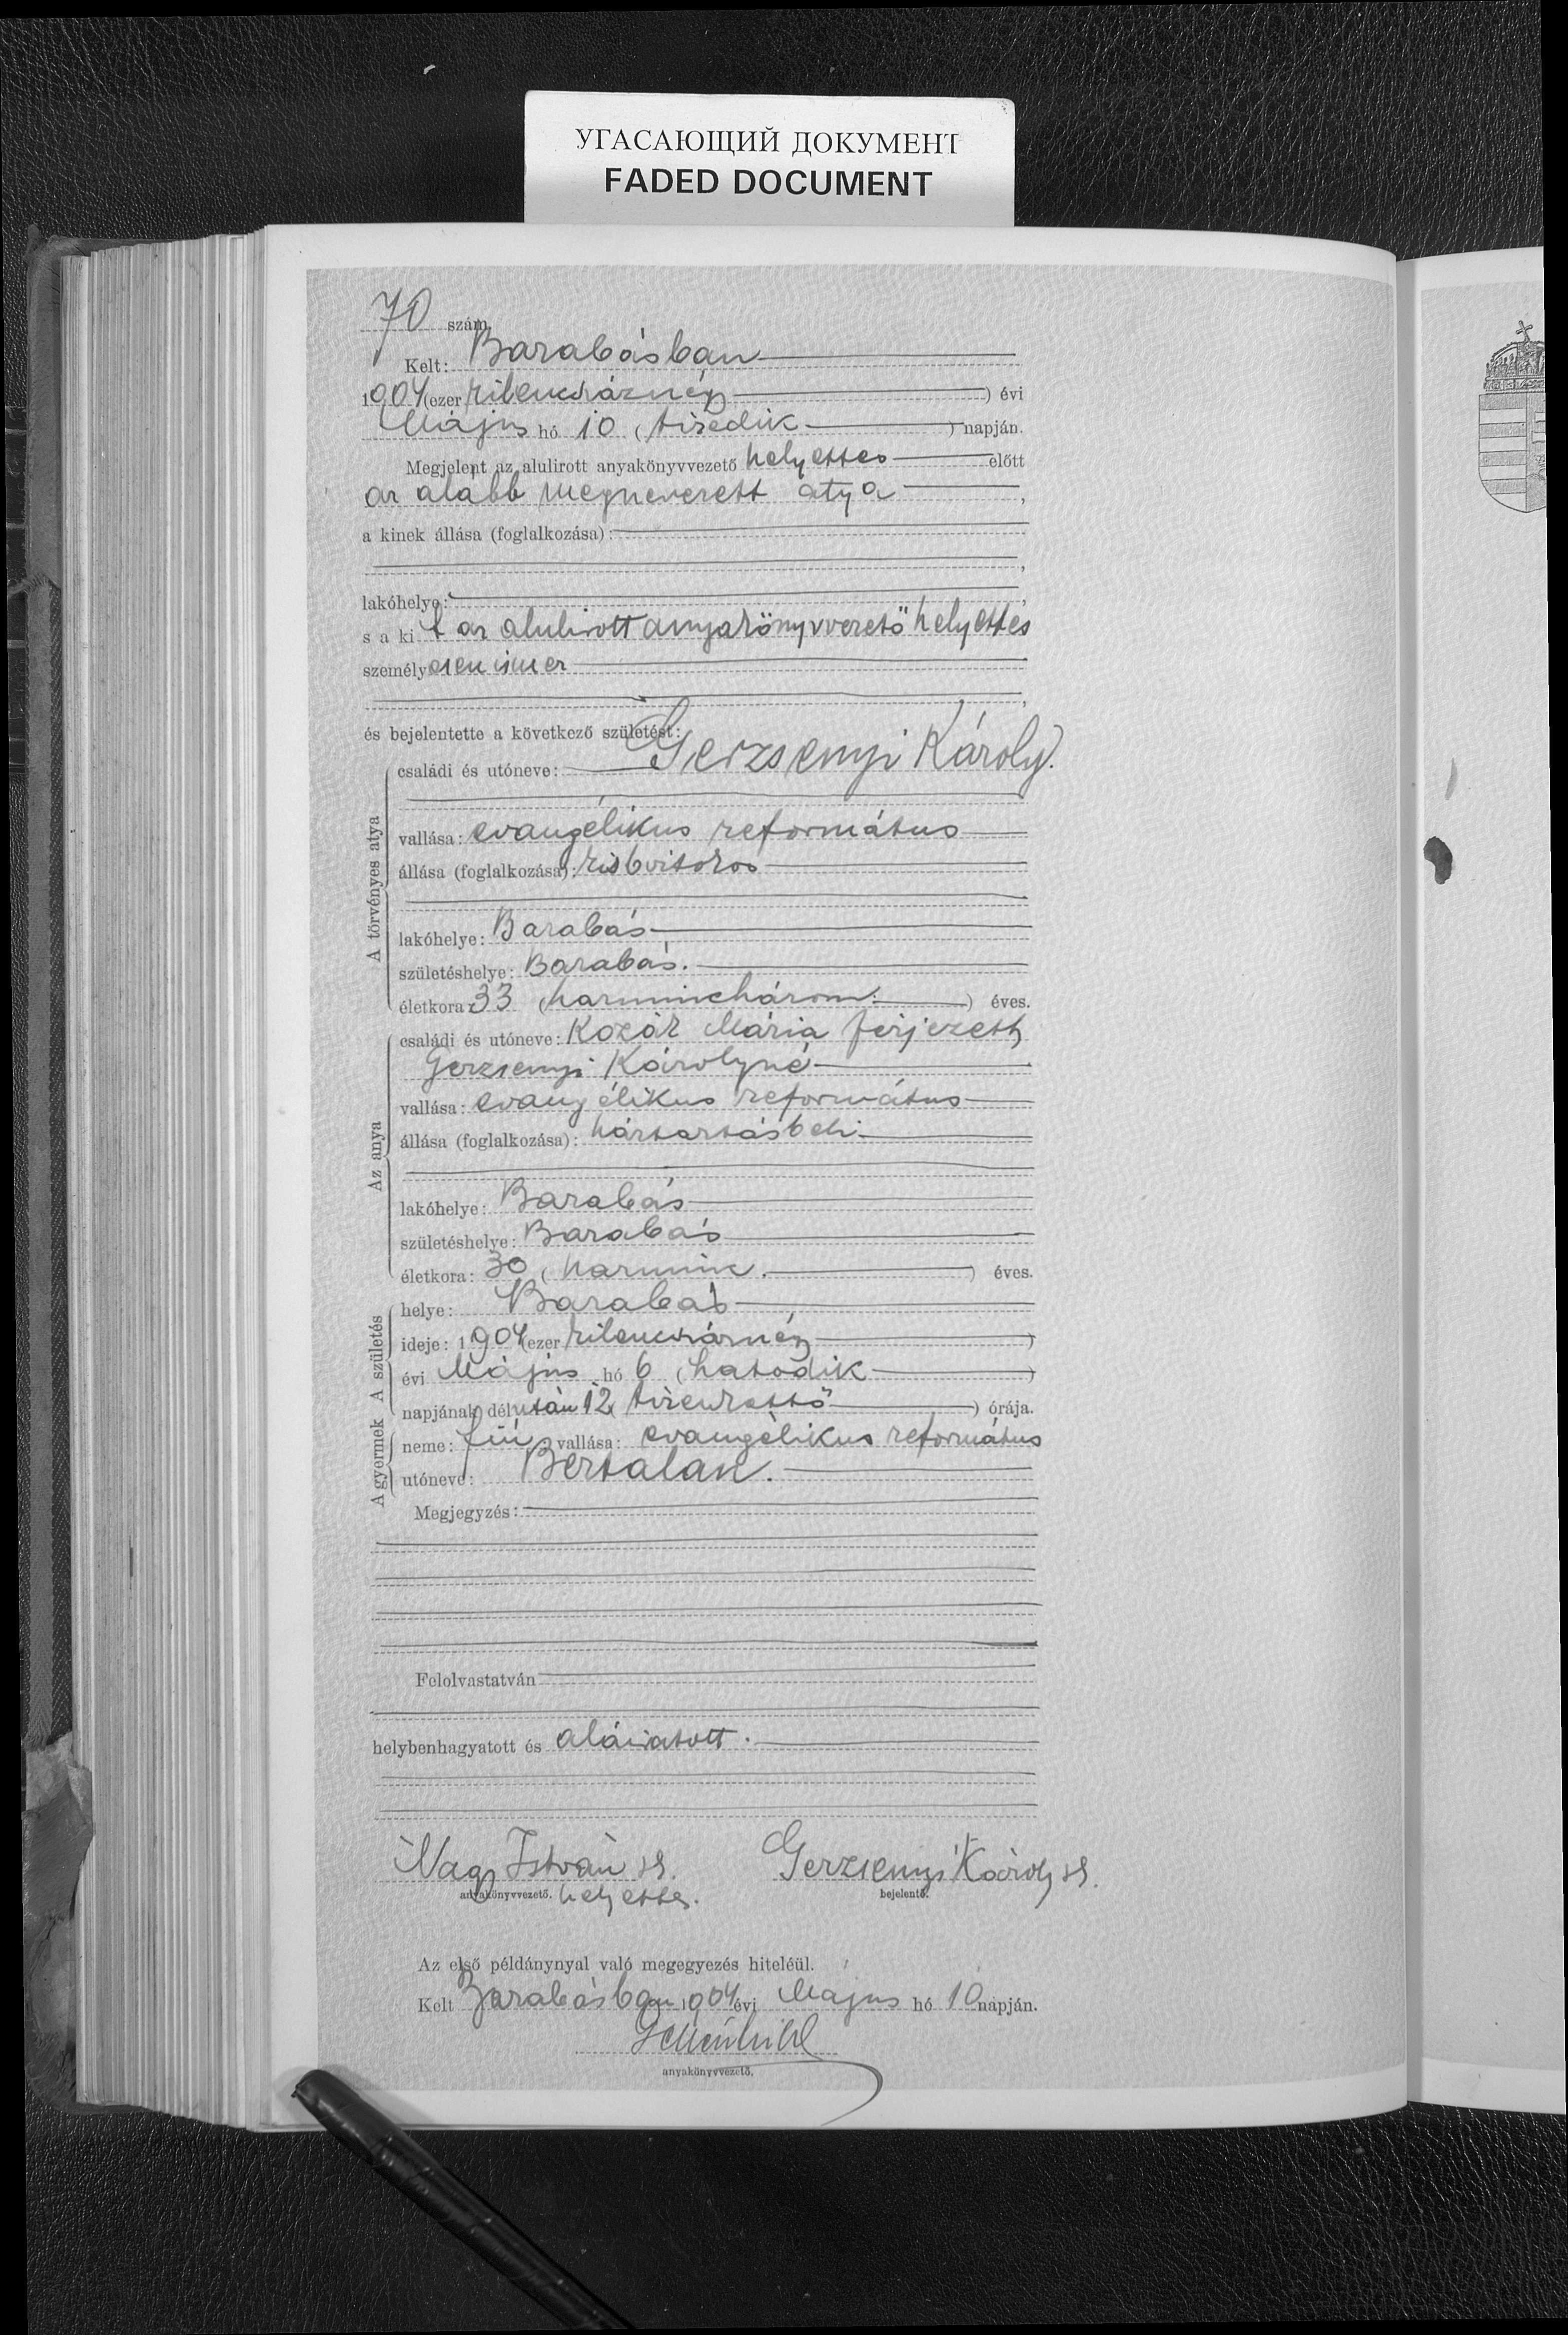 УГАСАЮЩИЙ ДОКУМЕНТ
FADED DOCUMENT
70 szám
Kelt: Barabásban
1904 (ezer kilencszáznégy ) évi
Május hó 10 ( tizedik ) napján.
Megjelent az alulirott anyakönyvvezető helyettes előtt
az alább megnevezett atya ,
a kinek állása (foglalkozása):
,
lakóhelye: ,
s a kit az alulirott anyakönyvvezető helyettes
személyesen ismer
,
és bejelentette a következő születést:
A törvényes atya
családi és utóneve: Gerzsenyi Károly.
vallása: evangélikus református
állása (foglalkozása): kisbirtokos
lakóhelye: Barabás
születéshelye: Barabás.
életkora: 33 (harminchárom. ) éves.
Az anya
családi és utóneve: Kozák Mária férjezett
Gerzsenyi Károlyné
vallása: evangélikus református
állása (foglalkozása): háztartásbeli
lakóhelye: Barabás
születéshelye: Barabás
életkora: 30 ( harminc. ) éves.
A születés
helye: Barabás
ideje: 1904 (ezer kilencszáznégy )
évi Május hó 6 ( hatodik )
napjának délután 12 ( tizenkettő ) órája.
A gyermek
neme: fiú, vallása: evangélikus református
utóneve: Bertalan.
Megjegyzés:
Felolvastatván
helybenhagyatott és aláíratott.
Nagy István sk. Gerzsenyi Károly sk.
anyakönyvvezető. helyettes. bejelentő.
Az első példánynyal való megegyezés hiteléül.
Kelt Barabásban 1904 évi Május hó 10 napján.
anyakönyvvezető.